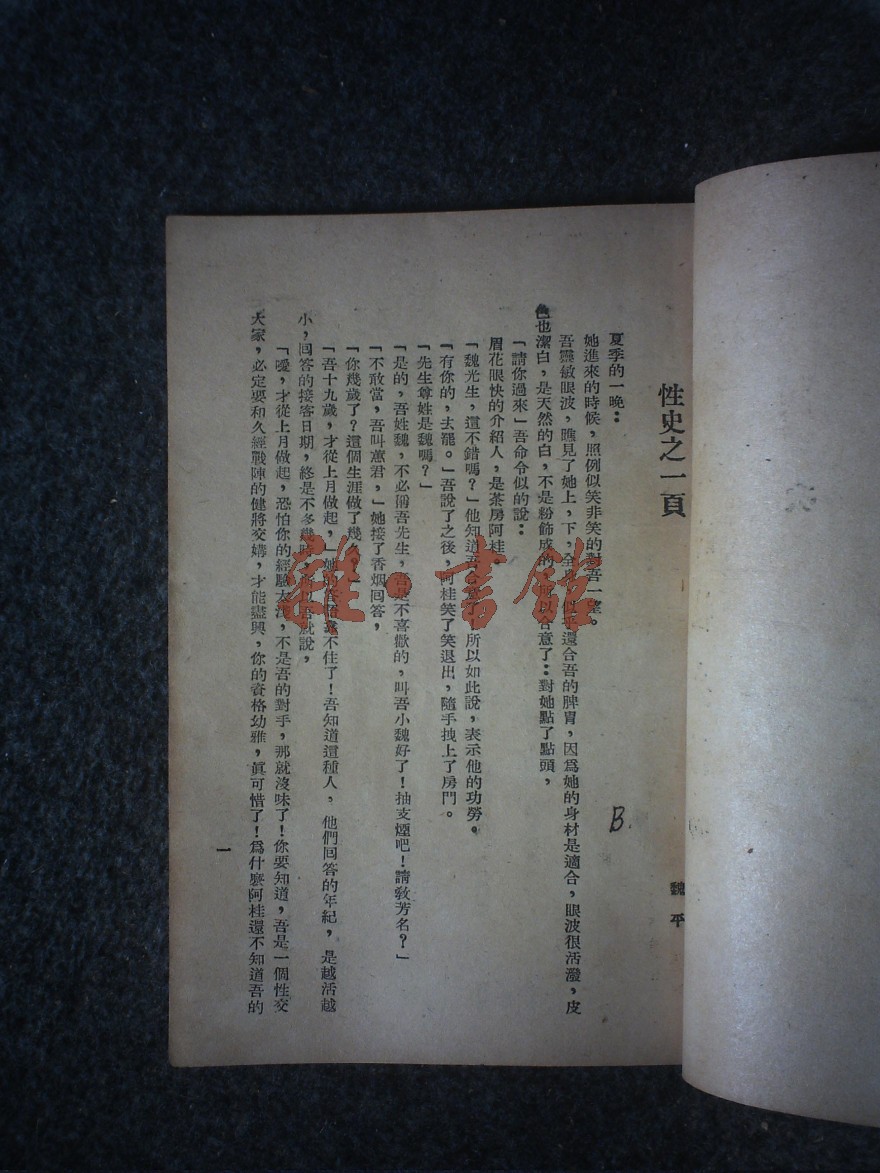 性史之一頁
魏平
夏季的一晚：
她進來的時候，照例似笑非笑的對吾一望。
吾靈敏眼波，瞧見了她上，下，全身，似乎還合吾的脾胃，因爲她的身材是適合，眼波很活潑，皮
色也潔白，是天然的白，不是粉飾成的，所以合意了：對她點了點頭，
「請你過來」吾命令似的說：
眉花眼快的介紹人，是茶房阿桂。
「魏先生，這不錯嗎？」他知道吾合意了，所以如此說，表示他的功勞。
「有你的，去罷。」吾說了之後，阿桂笑了笑退出，隨手拽上了房門。
「先生尊姓是魏嗎？」
「是的，吾姓魏，不必稱吾先生，吾是不喜歡的，叫吾小魏好了！抽支煙吧！請敎芳名？」
「不敢當，吾叫蕙君，」她接了香烟回答，
「你幾歲了？這個生涯做了幾久？」
「吾十九歲，才從上月做起，」她的答語靠不住了！吾知道這種人，他們回答的年紀，是越活越
小，回答的接客日期，終是不多幾時，所以吾就說，
「噯，才從上月做起，恐怕你的經驗太淺，不是吾的對手，那就沒味了！你要知道，吾是一個性交
大家，必定要和久經戰陣的健將交媾，才能盡興，你的資格幼雅，眞可惜了！爲什麽阿桂還不知道吾的
一
B.
雜·書館